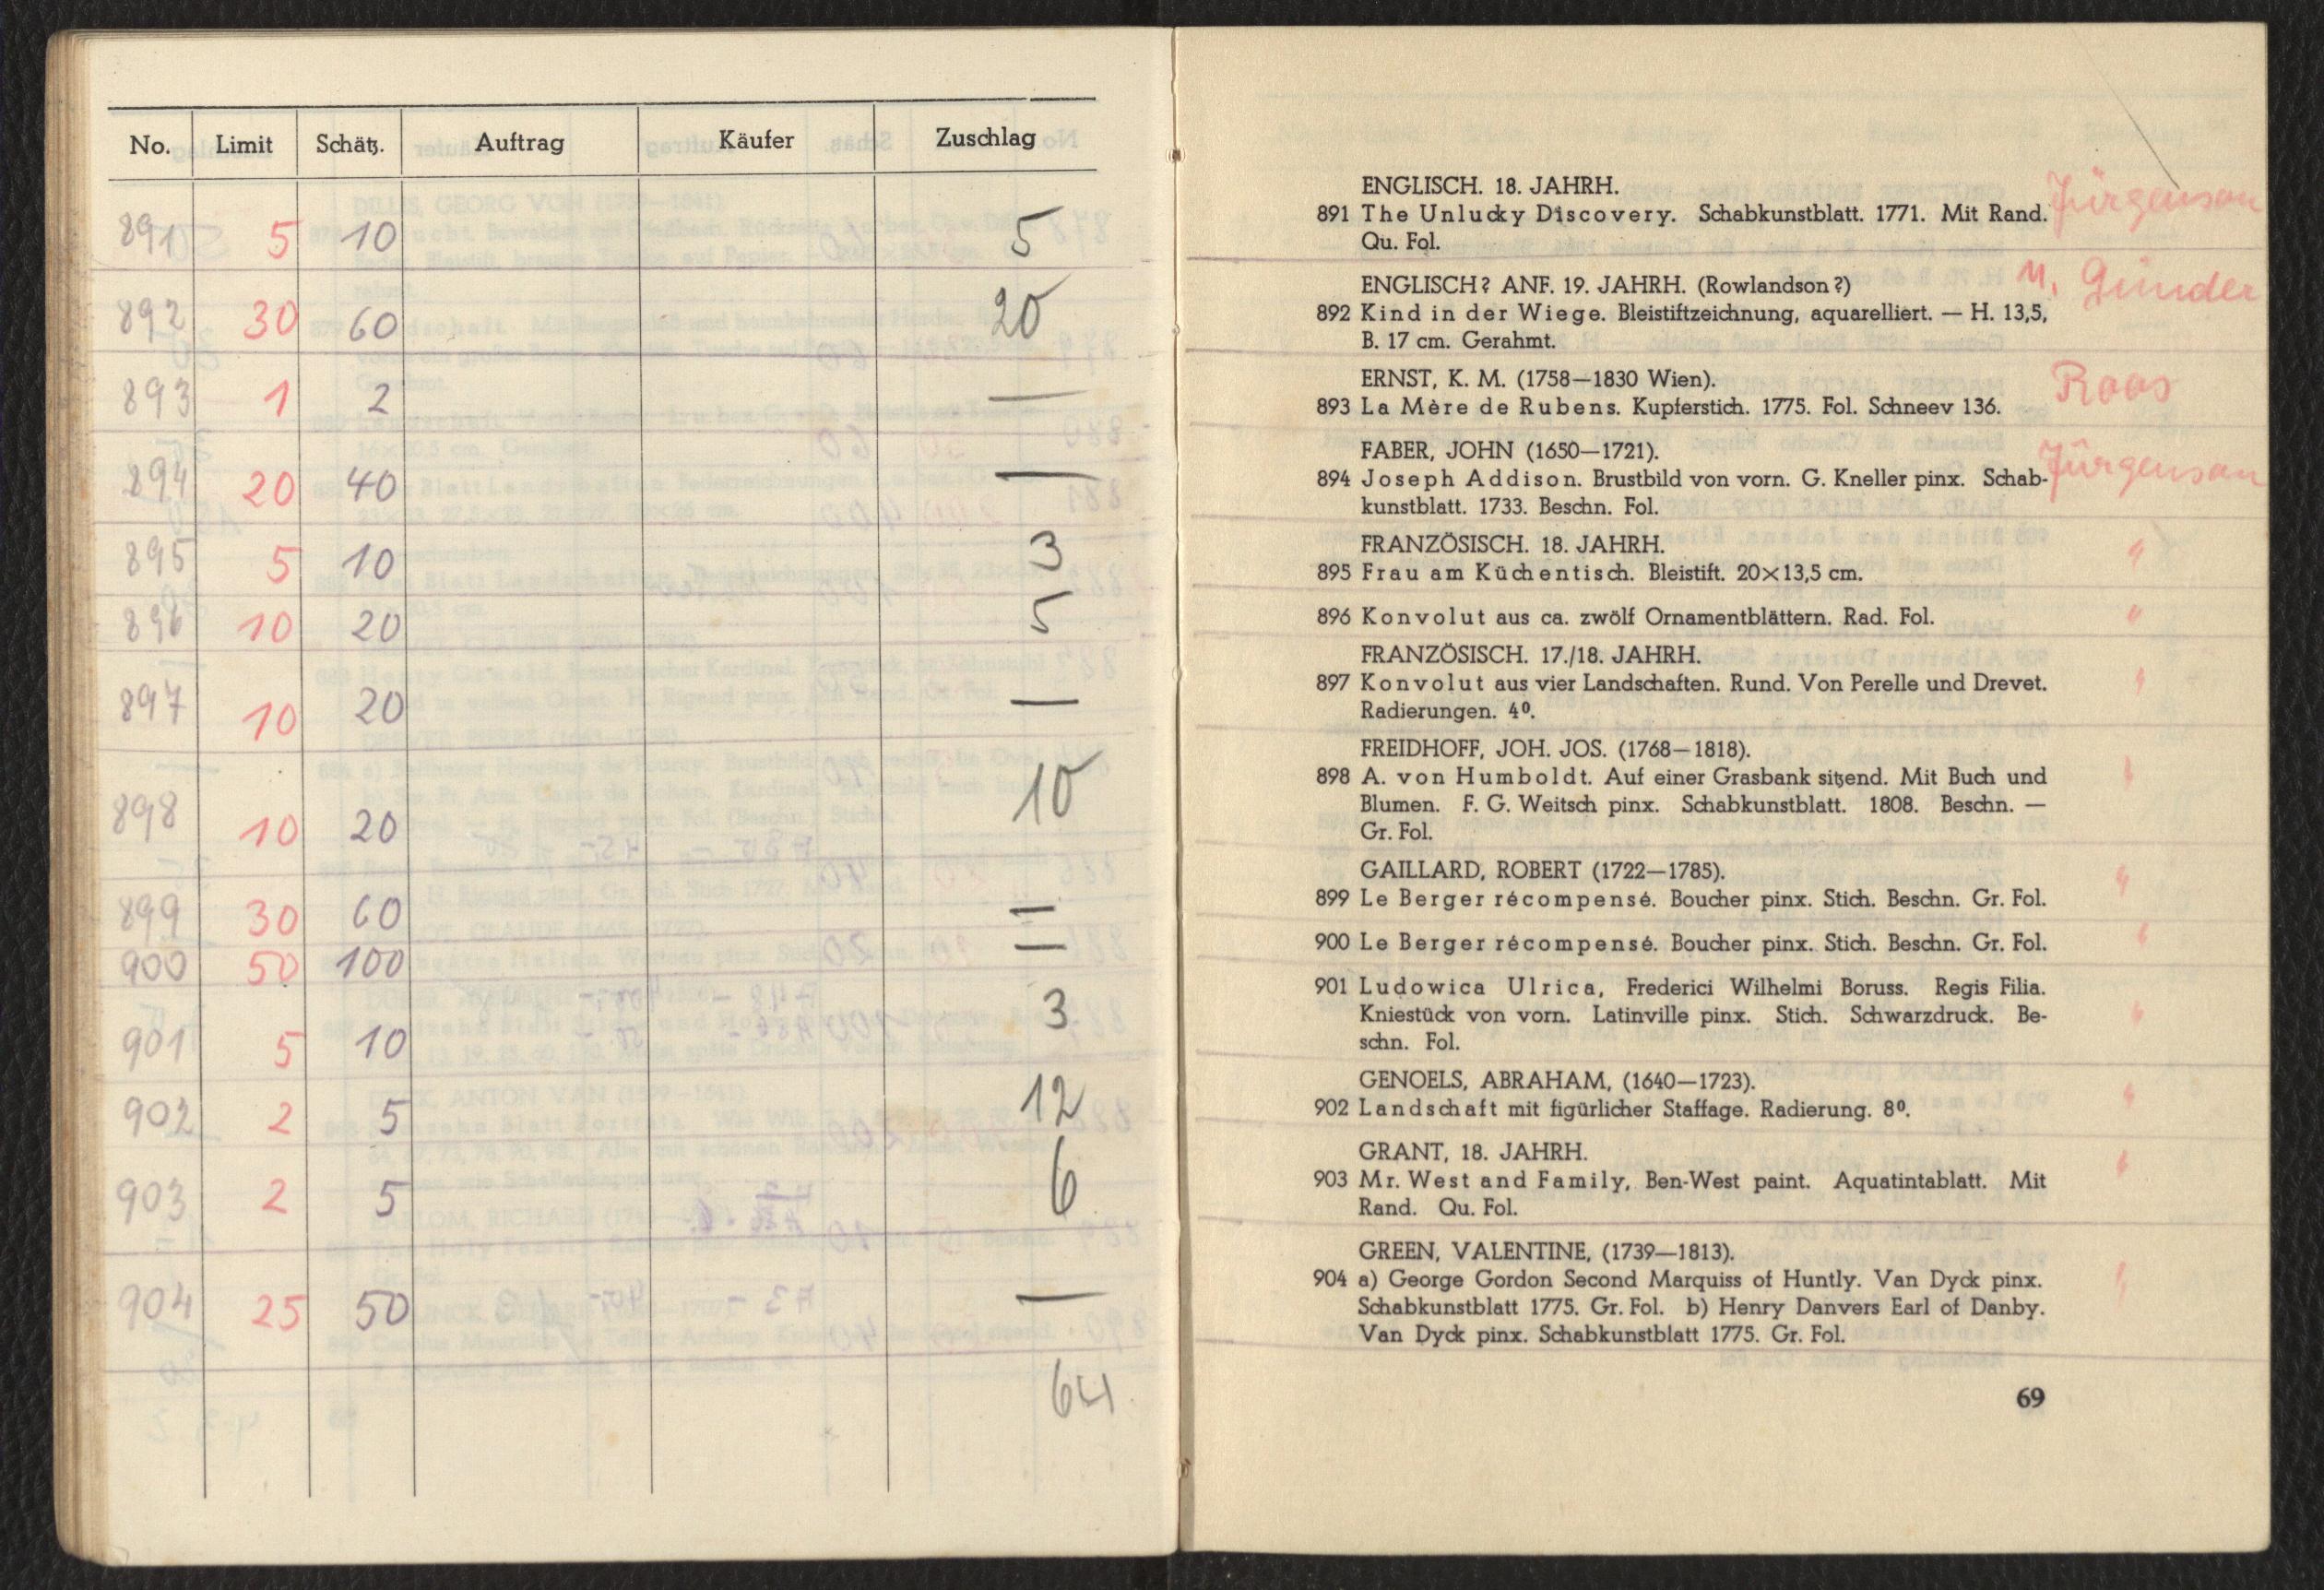 No. Limit Schätz. Auftrag Käufer Zuschlag
891 5 10 5
892 30 60 20
893 1 2 —
894 20 40 —
895 5 10 3
896 10 20 5
897 10 20 —
898 10 20 10
899 30 60 —
900 50 100 —
901 5 10 3
902 2 5 12
903 2 5 6
904 25 50 —
64
ENGLISCH. 18. JAHRH.
891 The Unlucky Discovery. Schabkunstblatt. 1771. Mit Rand. Jürgenson
Qu. Fol.
ENGLISCH? ANF. 19. JAHRH. (Rowlandson?) Günder
892 Kind in der Wiege. Bleistiftzeichnung, aquarelliert. — H. 13,5,
B. 17 cm. Gerahmt.
ERNST, K. M. (1758—1830 Wien). Roos
893 La Mère de Rubens. Kupferstich. 1775. Fol. Schneev 136.
FABER, JOHN (1650—1721).
894 Joseph Addison. Brustbild von vorn. G. Kneller pinx. Schab- Jürgenson
kunstblatt. 1733. Beschn. Fol.
FRANZÖSISCH. 18. JAHRH.
895 Frau am Küchentisch. Bleistift. 20×13,5 cm. "
896 Konvolut aus ca. zwölf Ornamentblättern. Rad. Fol. "
FRANZÖSISCH. 17./18. JAHRH.
897 Konvolut aus vier Landschaften. Rund. Von Perelle und Drevet. "
Radierungen. 4⁰.
FREIDHOFF, JOH. JOS. (1768—1818).
898 A. von Humboldt. Auf einer Grasbank sitzend. Mit Buch und "
Blumen. F. G. Weitsch pinx. Schabkunstblatt. 1808. Beschn. —
Gr. Fol.
GAILLARD, ROBERT (1722—1785).
899 Le Berger récompensé. Boucher pinx. Stich. Beschn. Gr. Fol. "
900 Le Berger récompensé. Boucher pinx. Stich. Beschn. Gr. Fol. "
901 Ludowica Ulrica, Frederici Wilhelmi Boruss. Regis Filia.
Kniestück von vorn. Latinville pinx. Stich. Schwarzdruck. Be- "
schn. Fol.
GENOELS, ABRAHAM, (1640—1723).
902 Landschaft mit figürlicher Staffage. Radierung. 8⁰. "
GRANT, 18. JAHRH.
903 Mr. West and Family, Ben-West paint. Aquatintablatt. Mit "
Rand. Qu. Fol.
GREEN, VALENTINE, (1739—1813).
904 a) George Gordon Second Marquiss of Huntly. Van Dyck pinx. "
Schabkunstblatt 1775. Gr. Fol. b) Henry Danvers Earl of Danby.
Van Dyck pinx. Schabkunstblatt 1775. Gr. Fol.
69